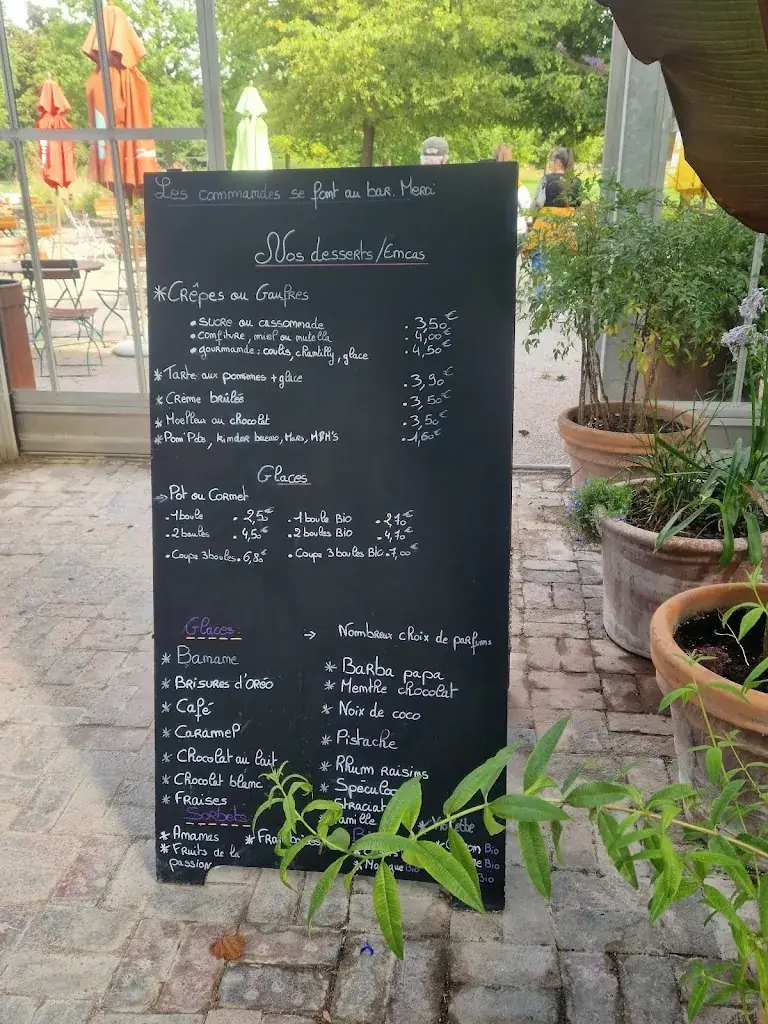 Les commandes se font au bar. Merci
Nos desserts/Encas
* Crêpes ou Gaufres
• sucre ou cassonnade . 3,50€
• confiture, miel ou nutella . 4,00€
• gourmande : coulis, chantilly, glace . 4,50€
* Tarte aux pommes + glace . 3,90€
* Crème brûlée . 3,50€
* Moelleux au chocolat . 3,50€
* Pom'Pote, kinder bueno, Mars, M&M's . 1,60€
Glaces
→ Pot ou Cornet
. 1 boule . 2,50€ . 1 boule Bio . 2,70€
. 2 boules . 4,50€ . 2 boules Bio . 4,70€
. Coupe 3 boules . 6,80€ . Coupe 3 boules Bio . 7,00€
Glaces : → Nombreux choix de parfums
* Banane
* Brisures d'Oréo
* Café
* Caramel
* Chocolat au lait
* Chocolat blanc
* Fraises
* Barba papa
* Menthe chocolat
* Noix de coco
* Pistache
* Rhum raisins
* Spéculo
Straciat
Sorbets
* Ananas
* Fruits de la
passion
* Fra
Bio
Bio
Bio
Bio